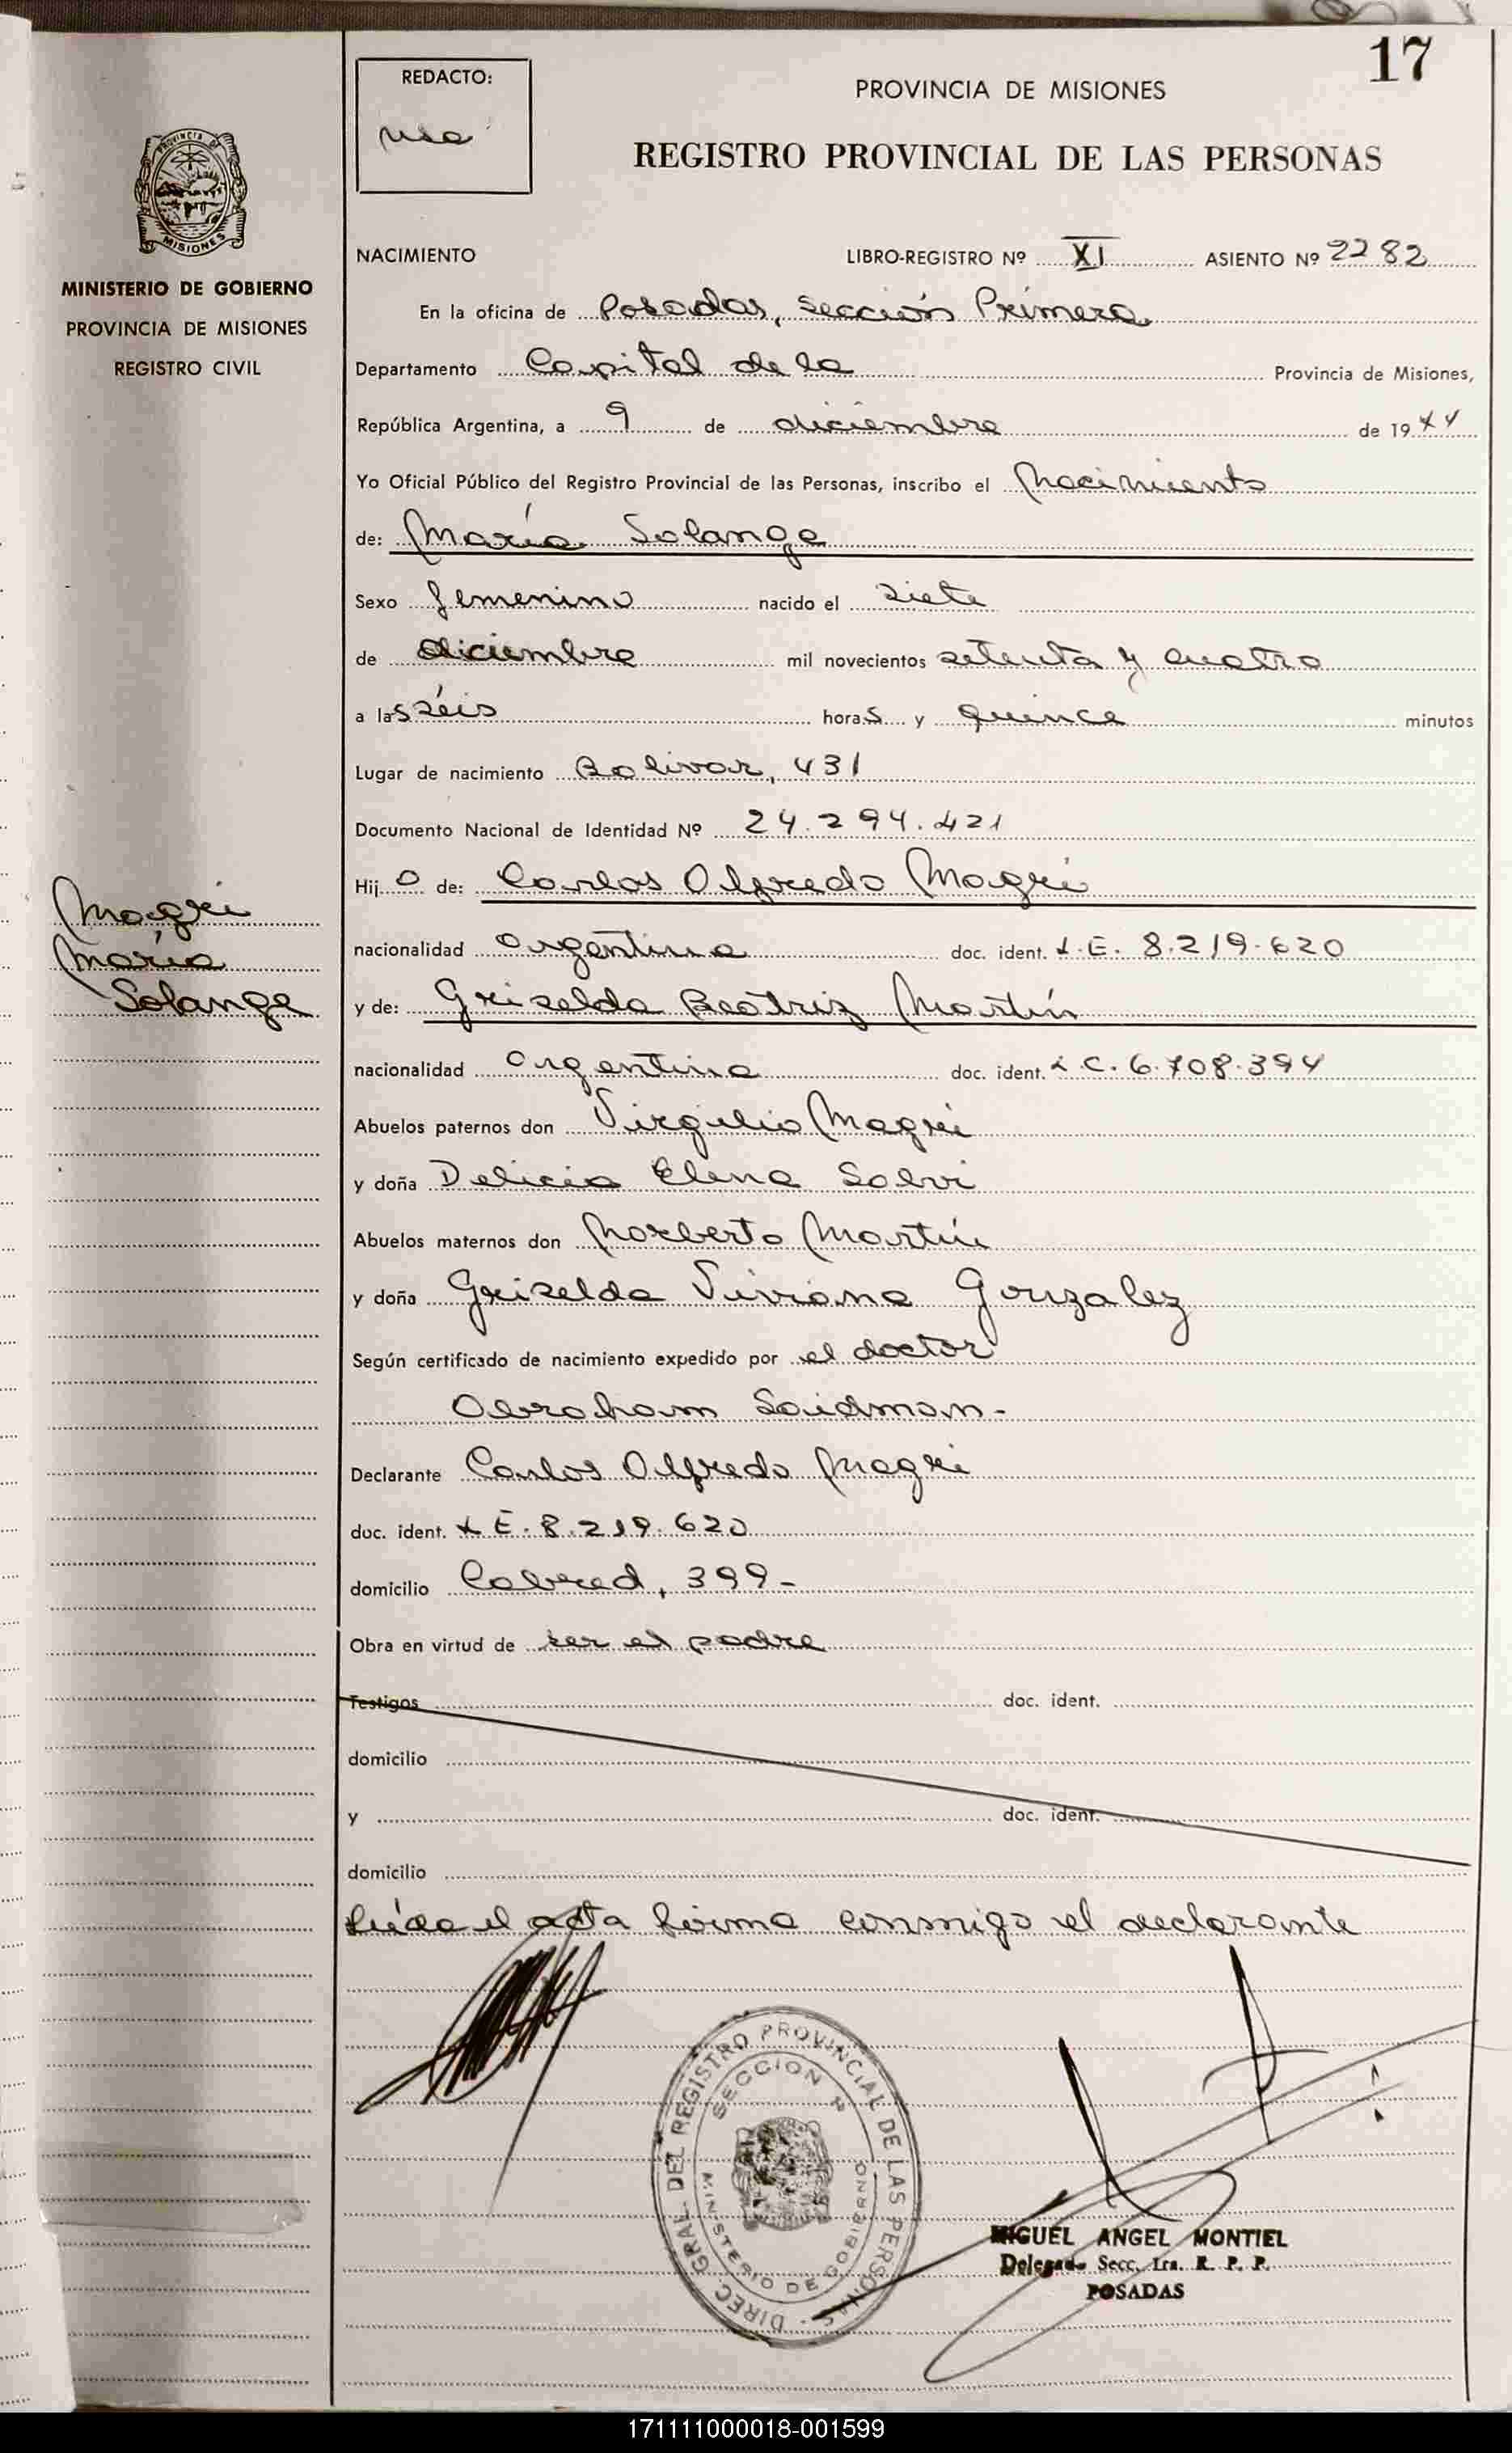 17
REDACTO:
PROVINCIA DE MISIONES
REGISTRO PROVINCIAL DE LAS PERSONAS
PROVINCIA DE
MISIONES
MINISTERIO DE GOBIERNO
PROVINCIA DE MISIONES
REGISTRO CIVIL
NACIMIENTO LIBRO-REGISTRO Nº XI ASIENTO Nº 2282
En la oficina de Posadas, Sección Primera
Departamento Capital de la Provincia de Misiones,
República Argentina, a 9 de diciembre de 1974
Yo Oficial Público del Registro Provincial de las Personas, inscribo el Nacimiento
de: María Solange
Sexo femenino nacido el siete
de diciembre mil novecientos setenta y cuatro
a las séis horas y quince minutos
Lugar de nacimiento Bolivar, 431
Documento Nacional de Identidad Nº 24.294.421
Hija de: Carlos Alfredo Magri
Magri
María
Solange
nacionalidad argentina doc. ident. L.E. 8.219.620
y de: Griselda Beatriz Martín
nacionalidad argentina doc. ident. L.C. 6.708.394
Abuelos paternos don Virgilio Magri
y doña Delicia Elena Salvi
Abuelos maternos don Norberto Martín
y doña Griselda Viviana Gonzalez
Según certificado de nacimiento expedido por el doctor
Abraham Saidman-
Declarante Carlos Alfredo Magri
doc. ident. L E. 8.219.620
domicilio Cabred, 399-
Obra en virtud de ser el padre
Testigos doc. ident.
domicilio
y doc. ident.
domicilio
Leída el acta firma conmigo el declarante
DIREC. GRAL. DEL REGISTRO PROVINCIAL DE LAS PERSONAS
SECCION 1ª
MINISTERIO DE GOBIERNO
MIGUEL ANGEL MONTIEL
Delegado Secc. 1ra. R. P. P.
POSADAS
171111000018-001599